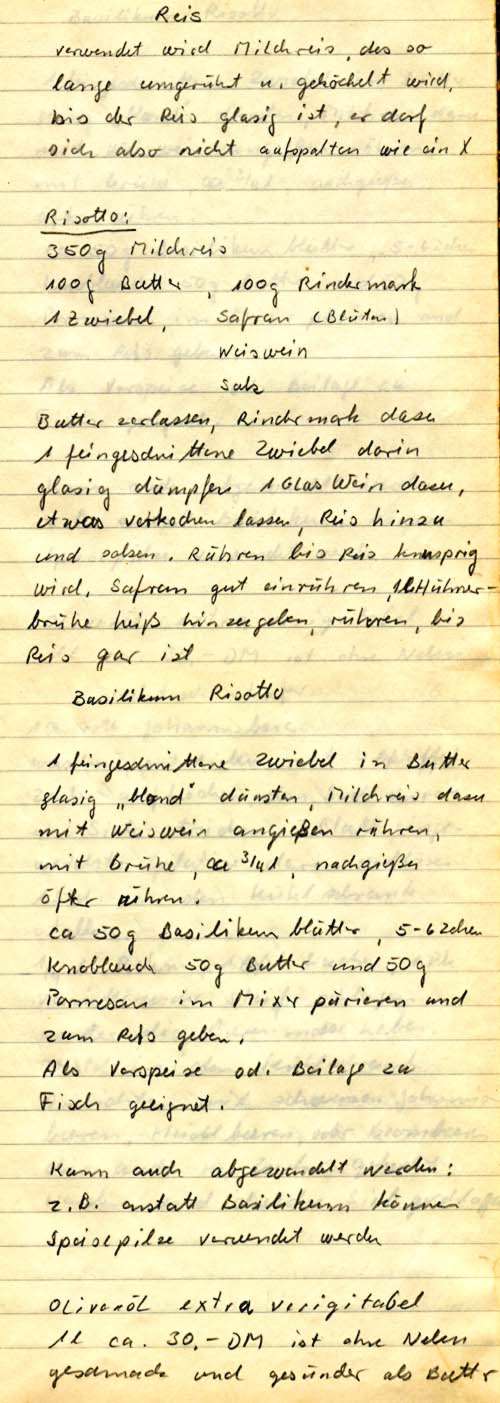 Reis
verwendet wird Milchreis, des so
lange umgerührt u. geköchelt wird,
bis der Reis glasig ist, er darf
sich also nicht aufspalten wie ein X
Risotto:
350g Milchreis
100g Butter, 100g Rindermark
1 Zwiebel, Safran (Blüten)
Weiswein
Salz
Butter zerlassen, Rindermark dazu
1 feingeschnittene Zwiebel darin
glasig dämpfen 1 Glas Wein dazu,
etwas verkochen lassen, Reis hinzu
und salzen. Rühren bis Reis knusprig
wird. Safran gut einrühren, 1l Hühner-
brühe heiß hinzugeben, rühren, bis
Reis gar ist
Basilikum Risotto
1 feingeschnittene Zwiebel in Butter
glasig „blond" dünsten, Milchreis dazu
mit Weiswein angießen rühren,
mit Brühe, ca 3/4 l, nachgießen
öfter rühren.
ca 50g Basilikum blätter, 5-6 Zehen
Knoblauch 50g Butter und 50g
Parmesan im Mixer pürieren und
zum Reis geben.
Als Vorspeise od. Beilage zu
Fisch geeignet.
Kann auch abgewandelt werden:
z.B. anstatt Basilikum können
Speisepilze verwendet werden
Olivenöl extra verigitabel
1l ca. 30,- DM ist ohne Neben
geschmack und gesünder als Butter